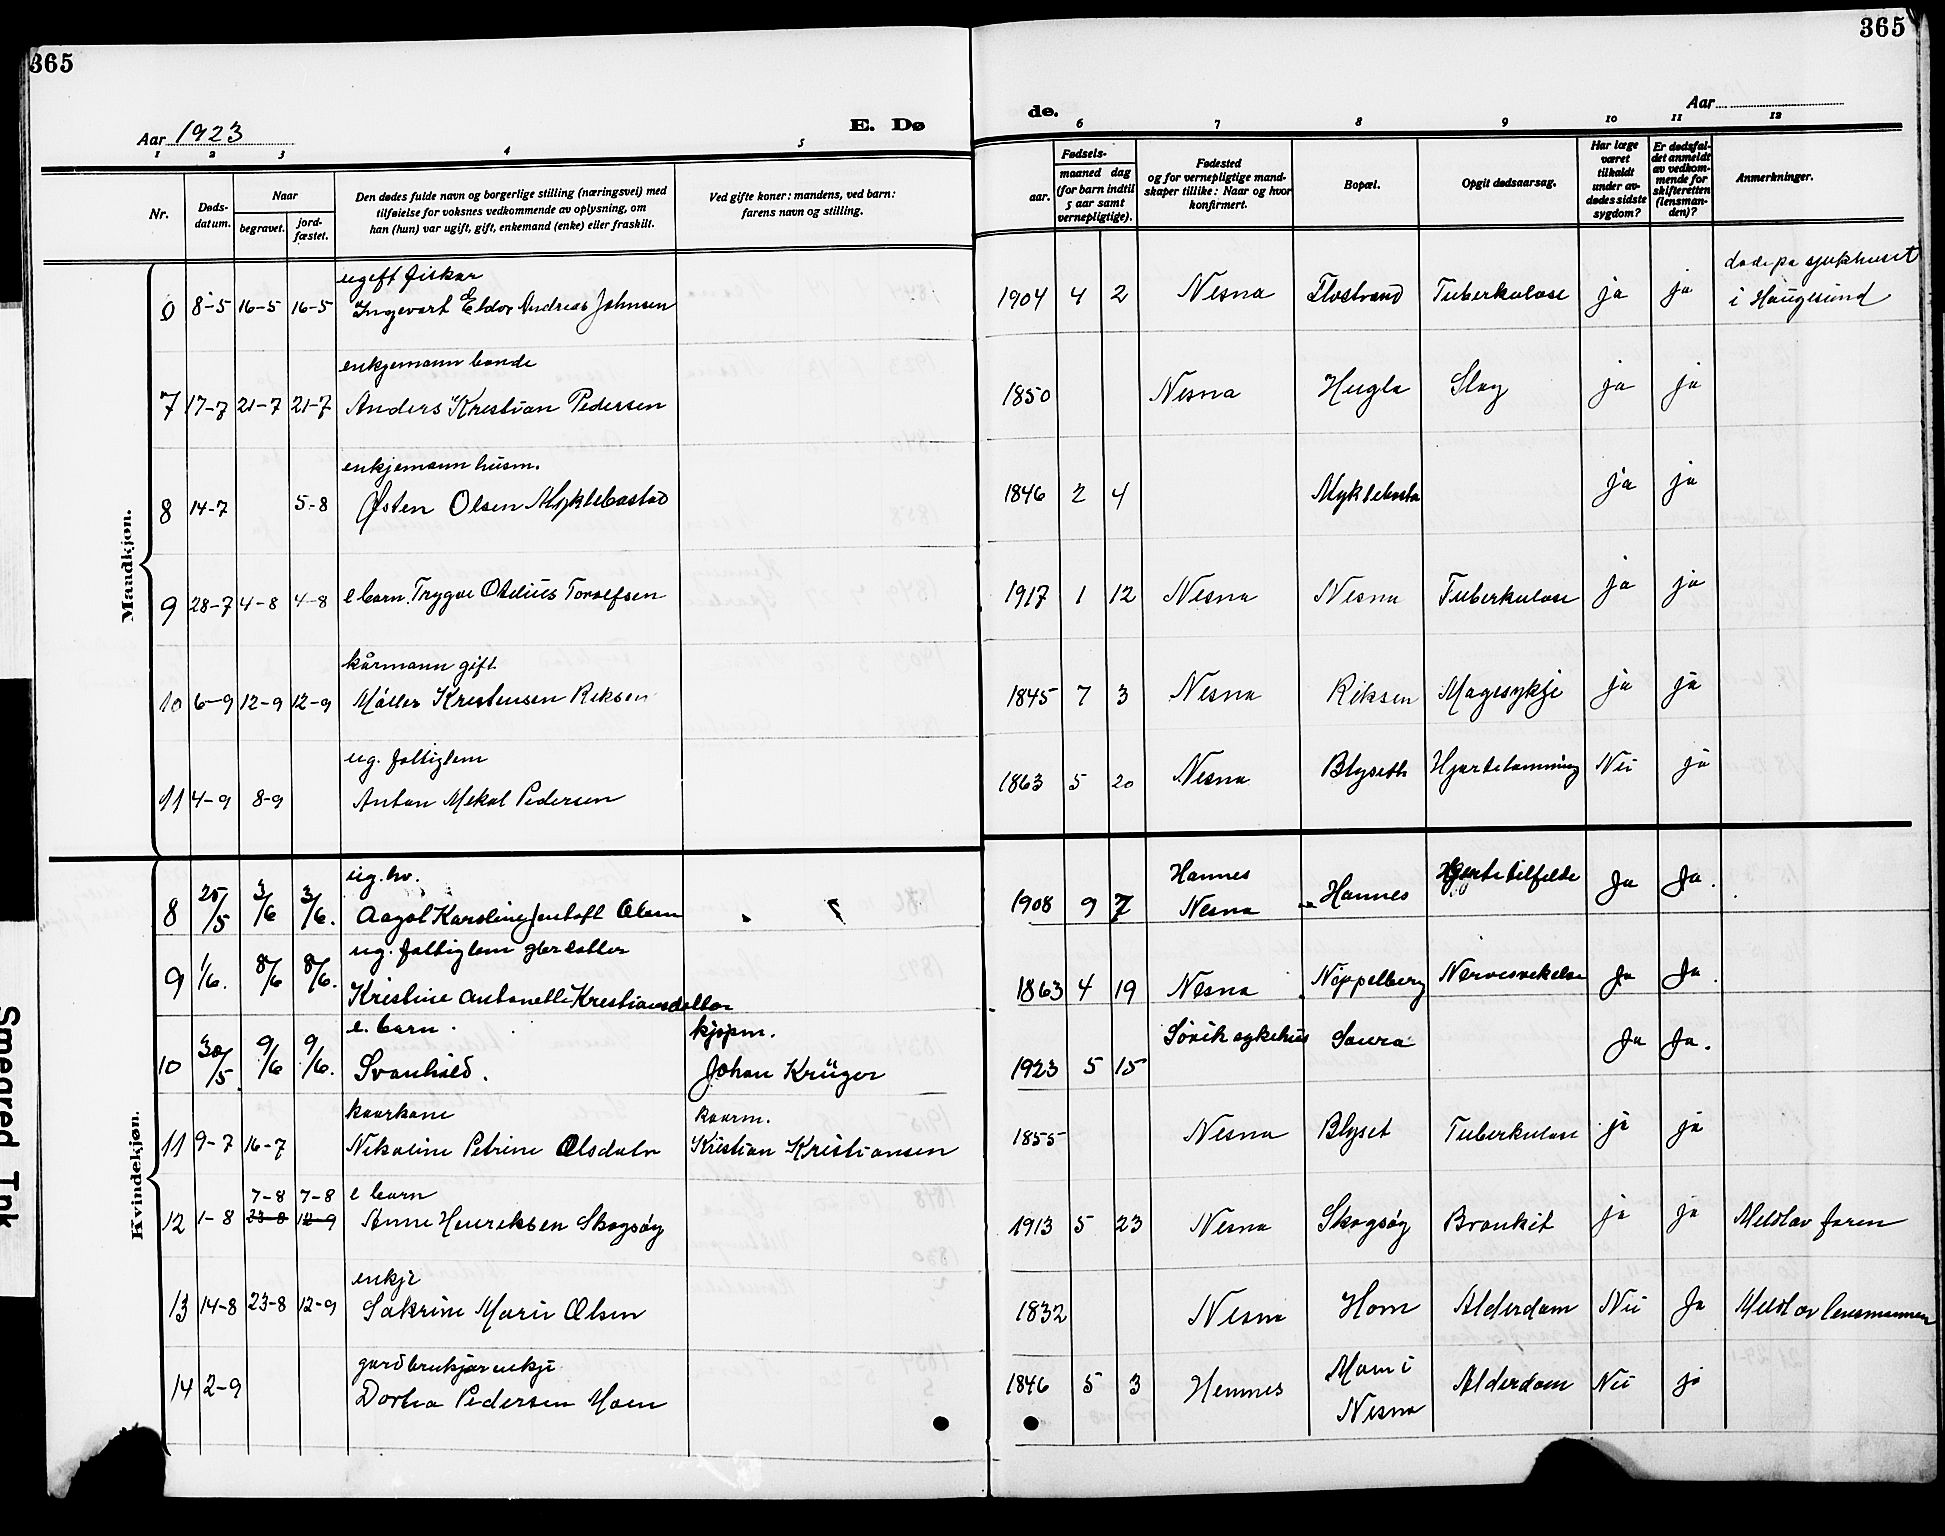 365
365
Aar 1923
E. Dø
de.
Aar
1 2 3 4 5 6 7 8 9 10 11 12
Nr.
Døds-
datum.
Naar
begravet.
jord-
fæstet.
Den dødes fulde navn og borgerlige stilling (næringsvei) med
tilføielse for voksnes vedkommende av oplysning, om
han (hun) var ugift, gift, enkemand (enke) eller fraskilt.
Ved gifte koner: mandens, ved barn:
farens navn og stilling.
Fødsels-
aar.
maaned dag
(for barn indtil
5 aar samt
vernepligtige).
Fødested
og for vernepligtige mand-
skaper tillike: Naar og hvor
konfirmert.
Bopæl.
Opgit dødsaarsag.
Har læge
været
tilkaldt
under av-
dødes sidste
sygdom?
Er dødsfal-
det anmeldt
av vedkom-
mende for
skifteretten
(lensman-
den)?
Anmerkninger.
Mandkjøn.
ugift fiskar
døde på sjukhuset
8-5 16-5 16-5 Ingevart Eldor Andreas Johnsen 1904 4 2 Nesna Flostrand Tuberkulose ja ja i Haugesund
enkjemann bonde
7 17-7 21-7 21-7 Anders Krestian Pedersen 1850 Nesna Hugla Slag ja ja
enkjemann husm.
8 14-7 5-8 Østen Olsen Myklebostad 1846 2 4 ja ja
9 28-7 4-8 4-8 e barn Trygve Otelius Toralfsen 1917 1 12 Nesna Nesna Tuberkulose ja ja
kårmann gift
10 6-9 12-9 12-9 Møller Krestensen Reksen 1845 7 3 Nesna Reksen Magesykje ja ja
ug. fattiglem
11 4-9 8-9 Anton Mekal Pedersen 1863 5 20 Nesna Blyseth Hjartelamming Nei ja
Kvindekjøn.
ug. hv.
8 25/5 3/6 3/6. Aagot Karoline Jentoft Olsen 1908 9 7 Hannes Nesna Hannes Hjertetilfelde Ja Ja.
ug. fattiglem
9 1/6. 8/6 8/6. Kristine Antonette Kristiansdatter 1863 4 19 Nesna Nøppelberg Nervesvekelse Ja Ja.
e. barn. kjøpm.
10 30/5 9/6 9/6. Svanhild. Johan Krüger 1923 5 15 Søvik sykehus Saura Ja Ja.
kaarkone kaarm.
11 9-7 16-7 Nikoline Petrine Olsdatr Kristian Kristiansen 1855 Nesna Blyset Tuberkulose ja ja
7-8 7-8 e barn
12 1-8 23-8 12-9 Anne Henriksen Skogsøy 1913 5 23 Nesna Skogsøy Bronkit ja ja Meldt av faren
enkje
13 14-8 23-8 12-9 Sakrine Marie Olsen 1832 Nesna Hom Alderdom Nei Ja Meldt av lensmannen
gardbrukjar enkje
14 2-9 Dortea Pedersen Moen 1846 5 3 Hemnes Mom i Nesna Alderdom Nei ja